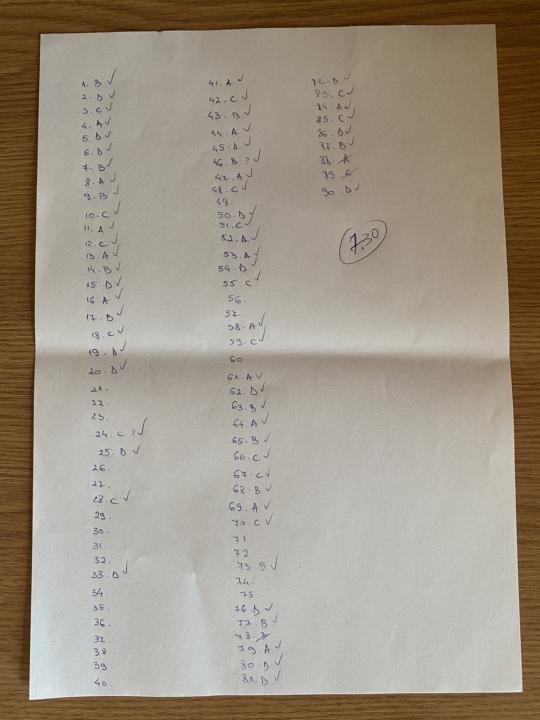 1. B ✓
2. D ✓
3. C ✓
4. A ✓
5. D ✓
6. D ✓
7. B ✓
8. A ✓
9. B ✓
10. C ✓
11. A ✓
12. C ✓
13. A ✓
14. B ✓
15. D ✓
16. A ✓
17. B ✓
18. C ✓
19. D ✓
20. D ✓
21.
22.
23.
24. C ? ✓
25. D ✓
26.
27.
28. C ✓
29.
30.
31.
32.
33. D ✓
34.
35.
36.
37.
38.
39.
40.
41. A ✓
42. C ✓
43. B ✓
44. A ✓
45. D ✓
46. B ? ✓
47. A ✓
48. C ✓
49.
50. D ✓
51. C ✓
52. A ✓
53. A ✓
54. D ✓
55. C ✓
56.
57.
58. A ✓
59. C ✓
60.
61. A ✓
62. D ✓
63. B ✓
64. A ✓
65. B ✓
66. C ✓
67. C ✓
68. B ✓
69. A ✓
70. C ✓
71.
72.
73. B ✓
74.
75
76 D ✓
77. B ✓
78. B
79. A ✓
80. D ✓
81. B ✓
82. D ✓
83. C ✓
84. A ✓
85. C ✓
86. D ✓
87. B ✓
88. A
89. C
90. D ✓
7,30